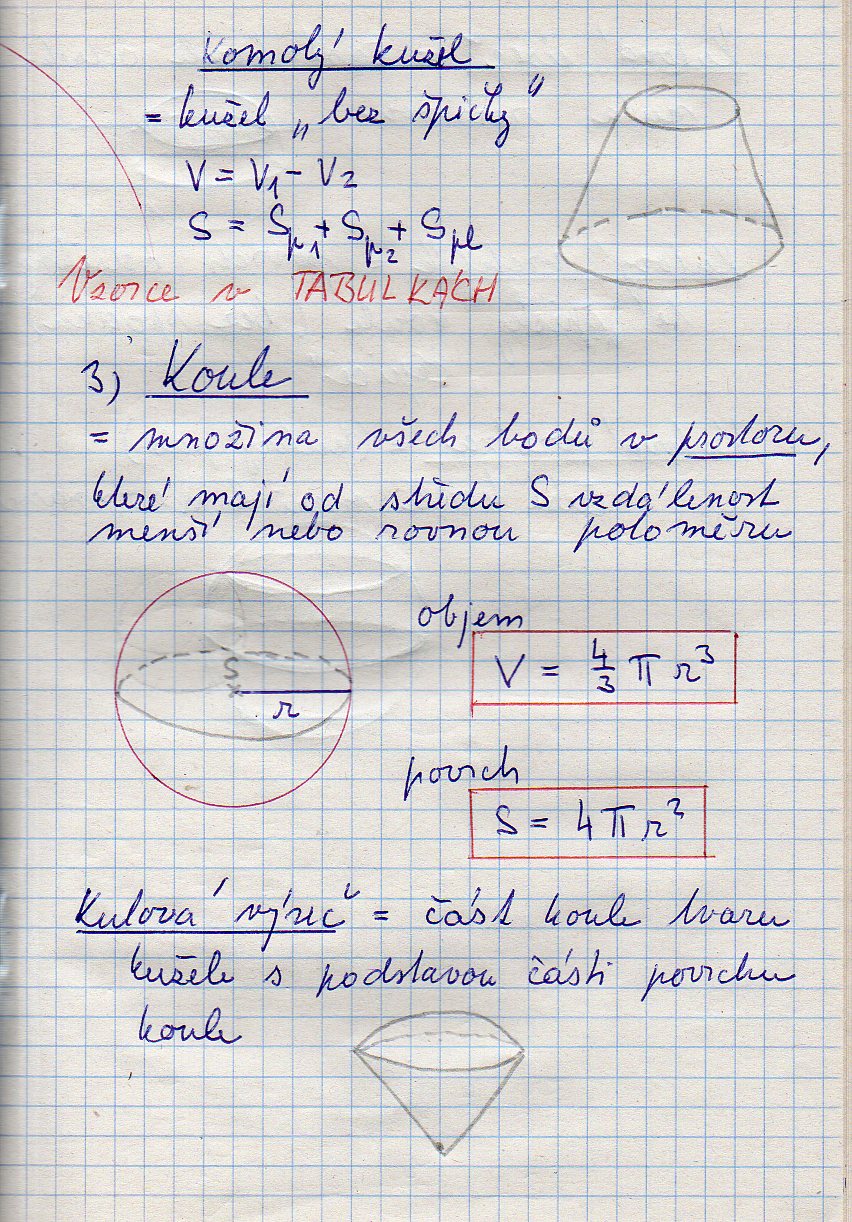 Komolý kužel
= kužel „bez špičky"
V = V₁ - V₂
S = Sp₁ + Sp₂ + Spl
Vzorce v TABULKÁCH
3) Koule
= množina všech bodů v prostoru,
které mají od středu S vzdálenost
menší nebo rovnou poloměru
objem
V = 4/3 π r³
S
r
povrch
S = 4πr²
Kulová výseč = část koule tvaru
kužele s podstavou části povrchu
koule